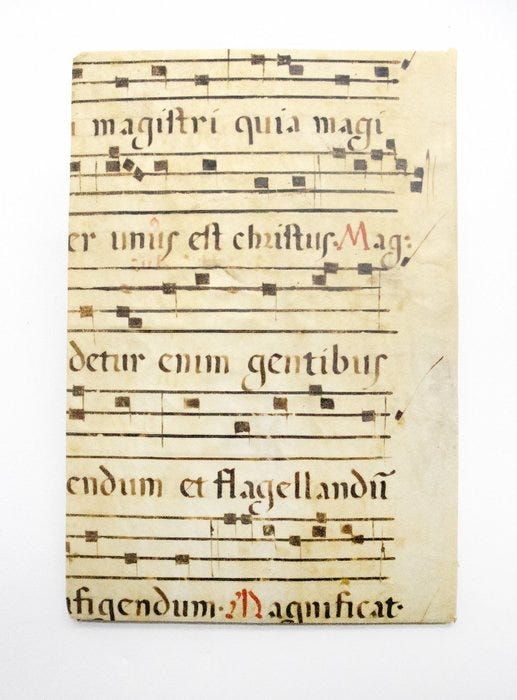 i magistri quia magi
er unus est christus. Mag:
detur enim gentibus
endum et flagellandū
ifigendum. Magnificat.